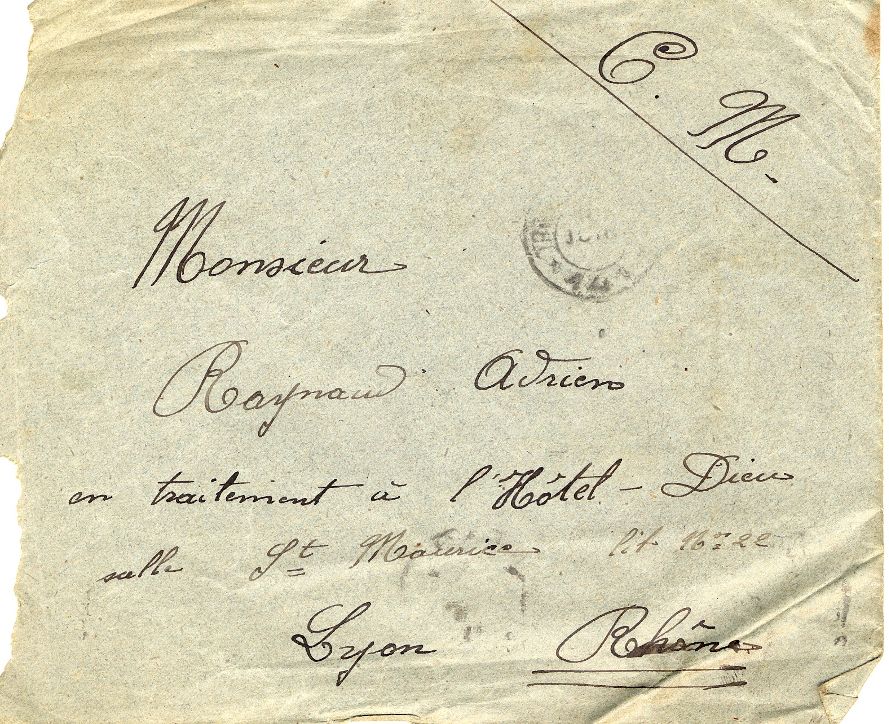 C. M.
Monsieur
Raynaud Adrien
en traitement à l'Hôtel-Dieu
salle St Maurice lit No 22
Lyon Rhône